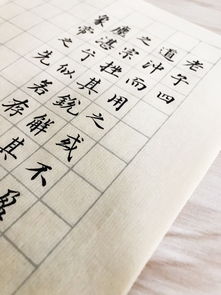 老子四
道沖而用之或不盈
之宗挫其銳解其
塵湛兮似若存
象帝之先